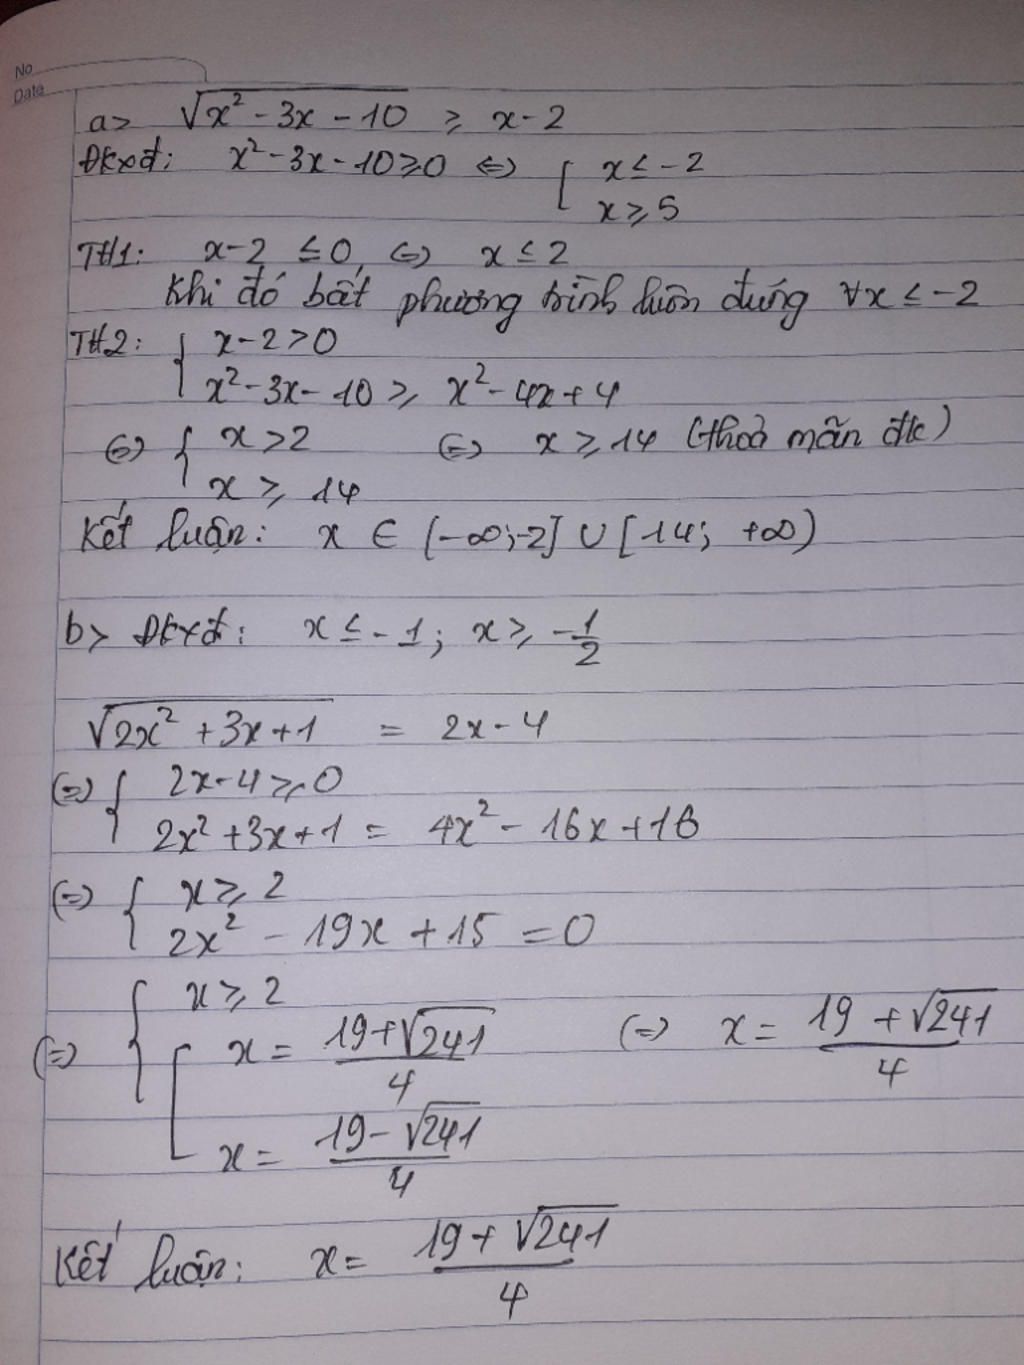 No
Date
a> √(x² - 3x - 10) ≥ x - 2
Đkxđ: x² - 3x - 10 ≥ 0 ⇔ [ x ≤ -2
x ≥ 5
TH1: x - 2 ≤ 0 ⇔ x ≤ 2
Khi đó bất phương trình luôn đúng ∀x ≤ -2
TH2: { x - 2 > 0
x² - 3x - 10 ≥ x² - 4x + 4
⇔ { x > 2 ⇔ x ≥ 14 (thoả mãn đk)
x ≥ 14
Kết luận: x ∈ (-∞; -2] ∪ [14; +∞)
b> Đkxđ: x ≤ -1; x ≥ -1/2
√(2x² + 3x + 1) = 2x - 4
⇔ { 2x - 4 ≥ 0
2x² + 3x + 1 = 4x² - 16x + 16
⇔ { x ≥ 2
2x² - 19x + 15 = 0
⇔ { x ≥ 2
[ x = (19 + √241)/4 ⇔ x = (19 + √241)/4
x = (19 - √241)/4
Kết luận: x = (19 + √241)/4